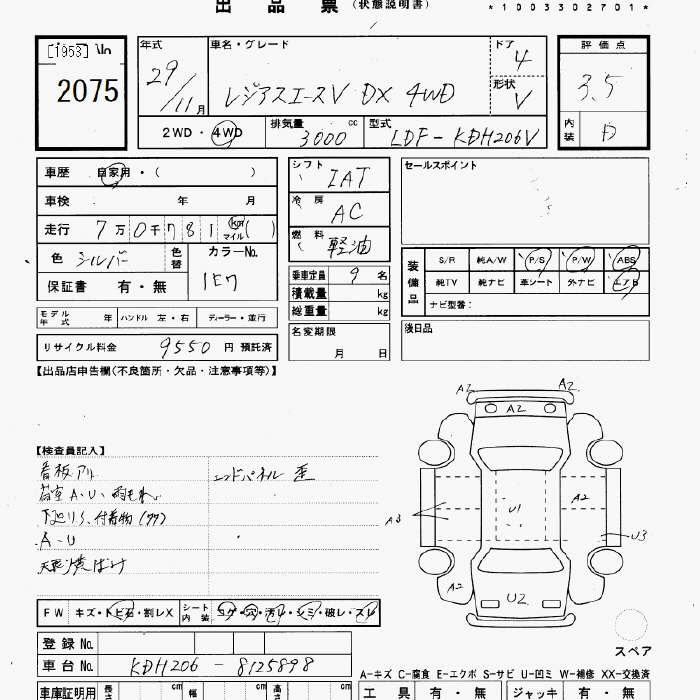 出品票 (状態説明書)
*1003302701*
[1953]
2075
年式 29/11月
車名・グレード
レジアスエースV DX 4WD
ドア 4
形状 V
評価点
3.5
内装 D
2WD・4WD
排気量 3000 cc
型式 LDF-KDH206V
車歴 自家用・( )
車検 年 月
走行 7万0千781 km マイル ( )
色 シルバー 色替
カラーNo. 1E7
保証書 有・無
シフト IAT
冷房 AC
燃料 軽油
乗車定員 9 名
積載量 kg
総重量 kg
名変期限
月 日
セールスポイント
装備品
S/R 純A/W P/S P/W ABS
純TV 純ナビ 革シート 外ナビ エアB
ナビ型番:
後日品
モデル年式 年 ハンドル 左・右 ディーラー・並行
リサイクル料金 9550 円 預託済
【出品店申告欄(不良箇所・欠品・注意事項等)】
【検査員記入】
看板アリ
エンドパネル 歪
荷室 A・U、雨もれ、
下廻りS、付着物(ササ)
A-U
天張り焼ばけ
A2 A2
A2
A3
U1
A2
U3
A2
U2
スペア
FW キズ・トビ石・割レX シート内装 コゲ・穴・汚レ・シミ・破レ・スレ
登録No.
車台No. KDH206-8125898
A-キズ C-腐食 E-エクボ S-サビ U-凹ミ W-補修 XX-交換済
車庫証明用 長さ cm 幅 cm 高さ cm
工具 有・無 ジャッキ 有・無